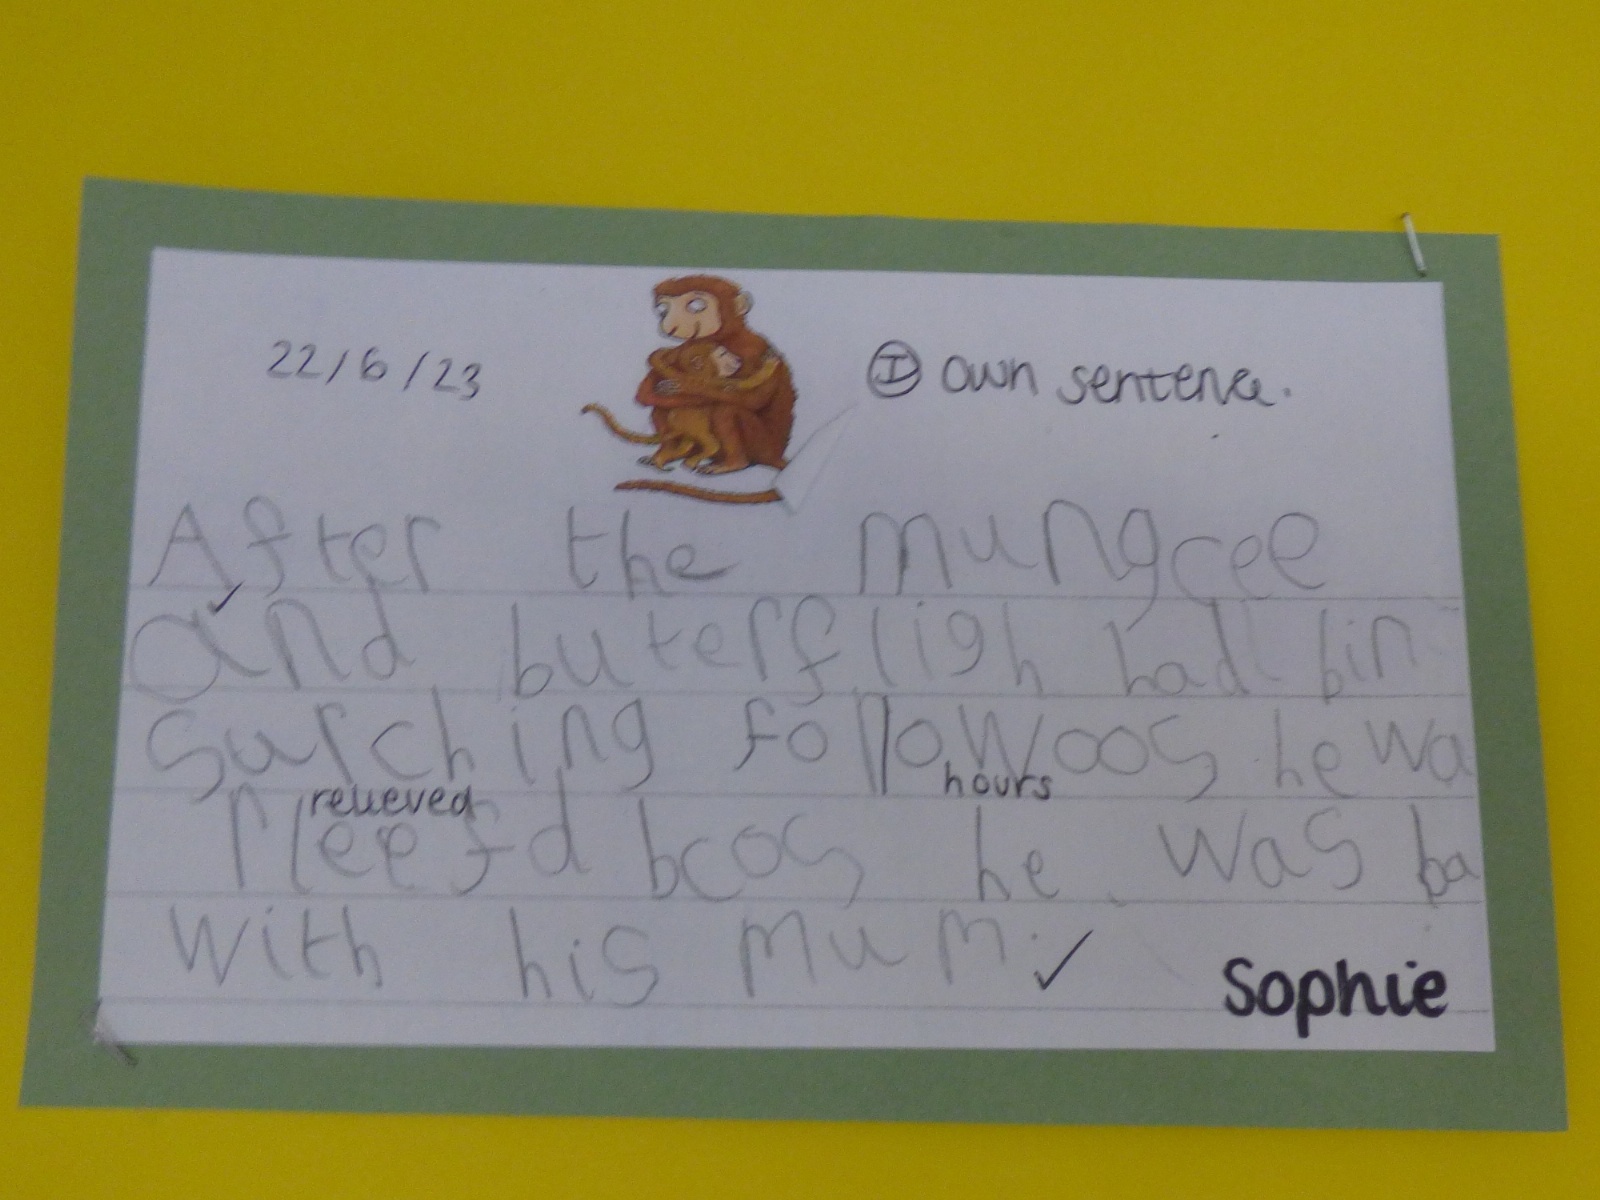 22/6/23
I own sentence.
After the mungcee
and buterfligh had bin
surching follo Woos he wa
hours
relieved
rleefd bcos he was ba
with his mum.
Sophie